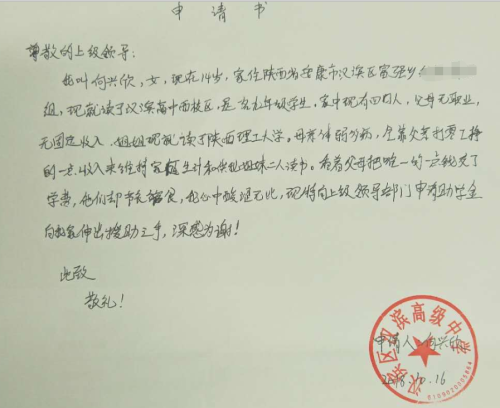 申请书
尊敬的上级领导:
我叫何兴欣,女,现在14岁,家住陕西省安康市汉滨区家强乡
组,现就读于汉滨高中西校区,是九年级学生,家中现有四口人,父母无职业,
无固定收入,姐姐现就读于陕西理工大学。母亲体弱多病,全靠父亲打零工挣
的一点收入来维持家庭生计和供我姐妹二人读书。看着父母把唯一的一点钱交了
学费,他们却节衣缩食,我心中酸涩无比,现特向上级领导部门申请助学金
向我家伸出援助之手,深感为谢!
此致
敬礼!
申请人:何兴欣
2018.10.16
汉滨区汉滨高级中学